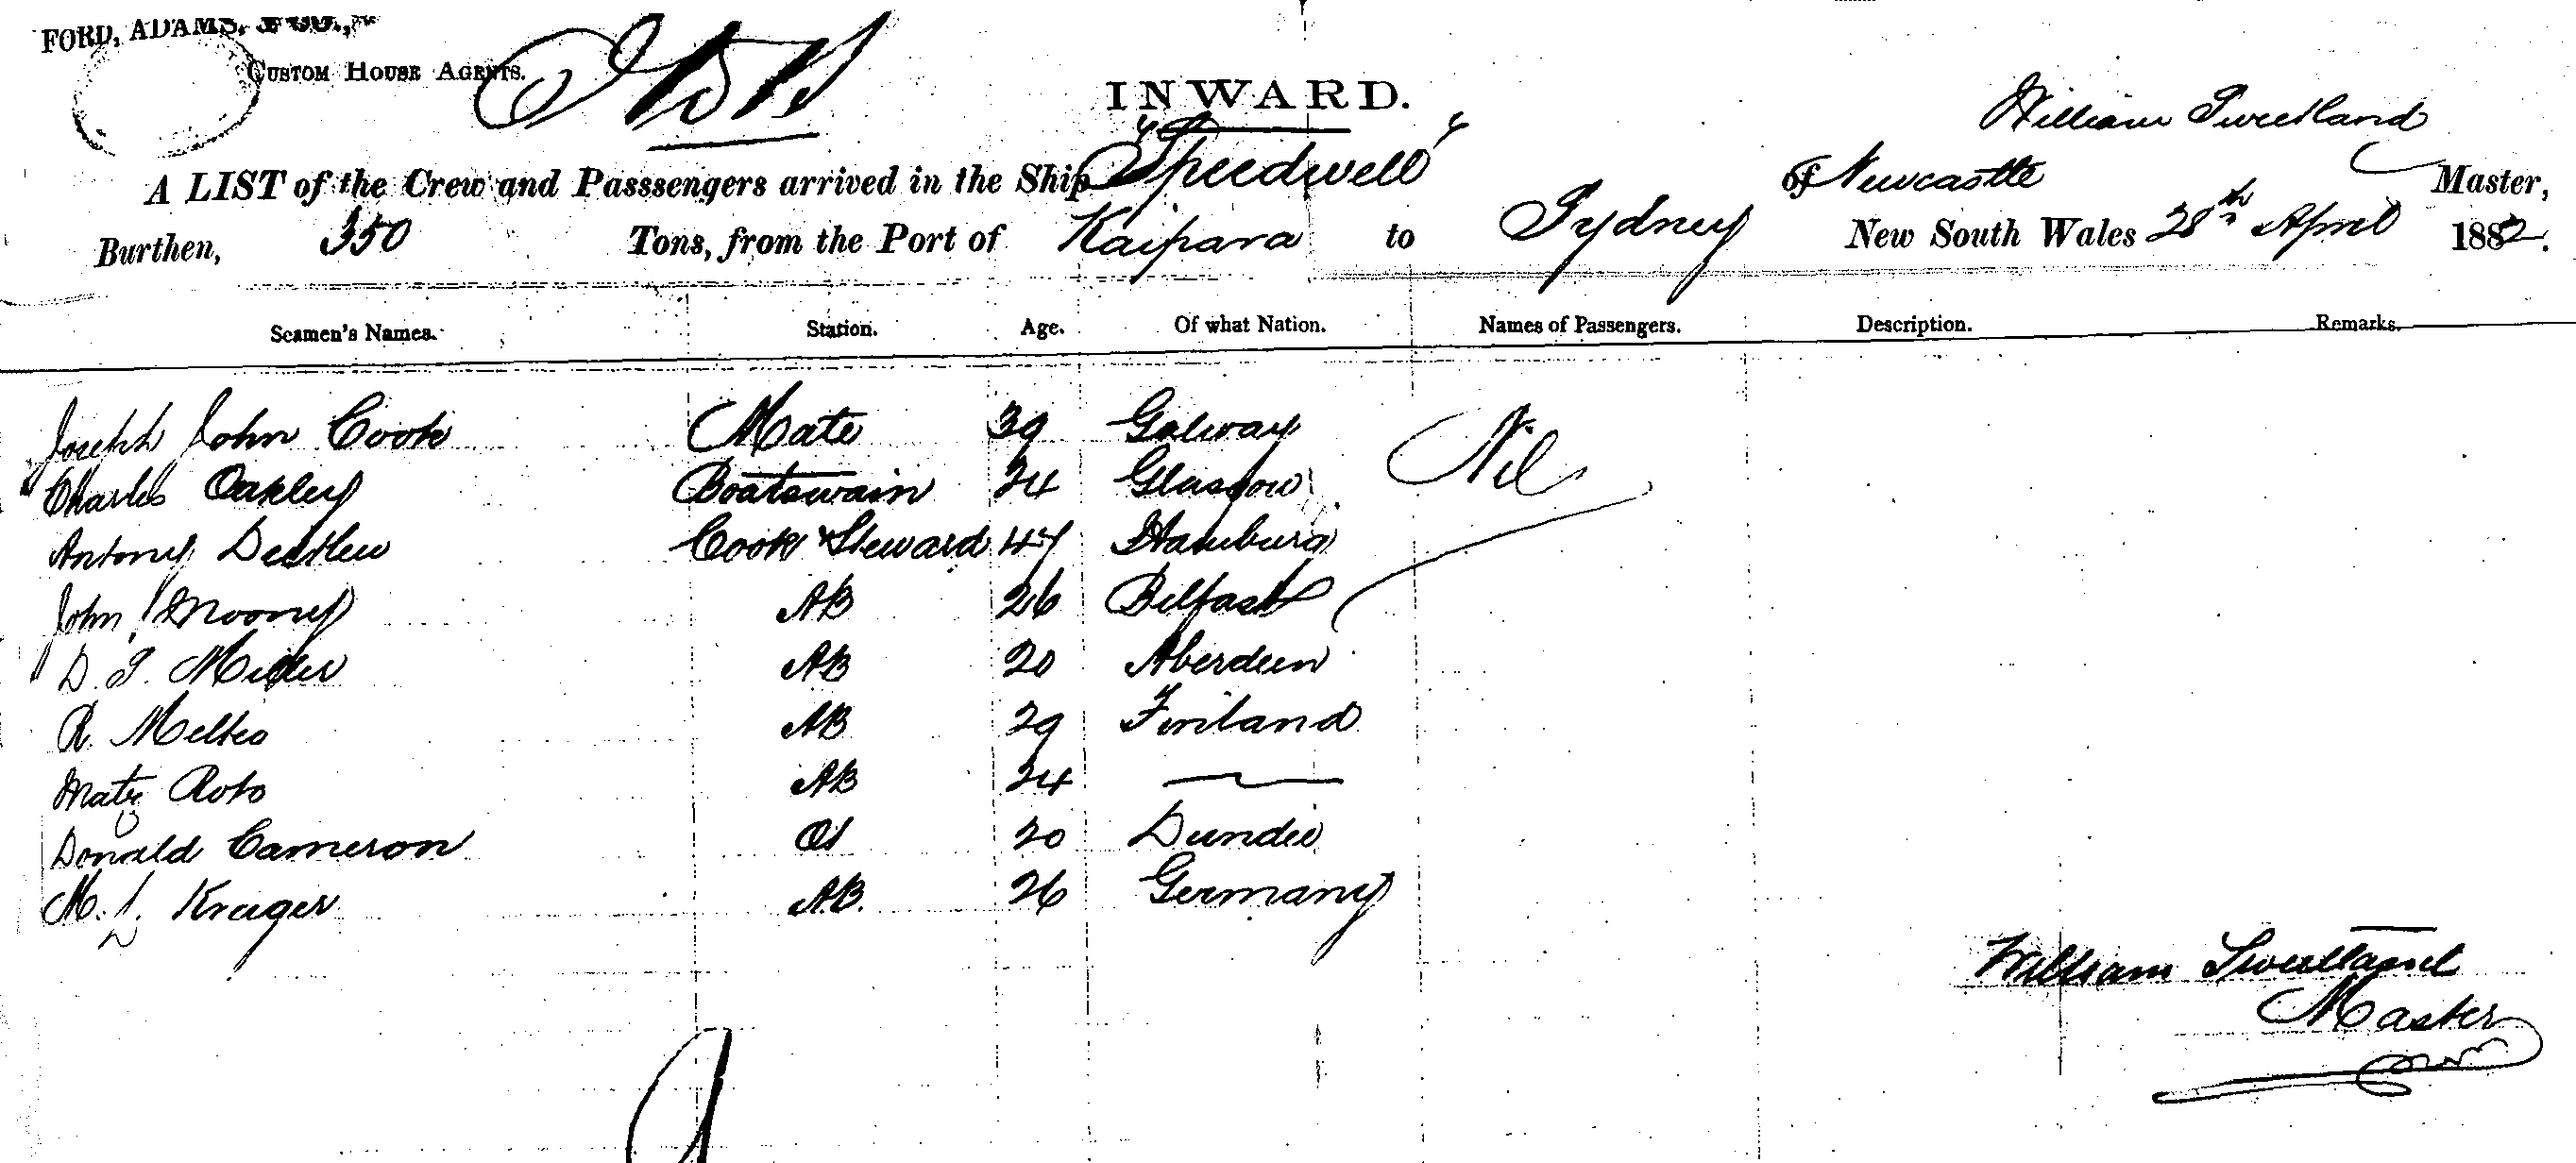 FORD, ADAMS, & CO.,
CUSTOM HOUSE AGENTS.
INWARD.
William Sweetland
A LIST of the Crew and Passsengers arrived in the Ship "Speedwell" of Newcastle Master,
Burthen, 350 Tons, from the Port of Kaipara to Sydney New South Wales 28th April 1882.
Seamen's Names. Station. Age. Of what Nation. Names of Passengers. Description. Remarks.
Joseph John Cook Mate 39 Galway Nil
Charles Oakley Boatswain 24 Glasgow
Antony Cook & Steward 47 Hamburg
John Mooney AB 26 Belfast
D. S. AB 20 Aberdeen
R. AB 29 Finland
Roto AB 24 —
Donald Cameron OS 20 Dundee
M. L. Kruger A.B. 26 Germany
William Sweetland
Master